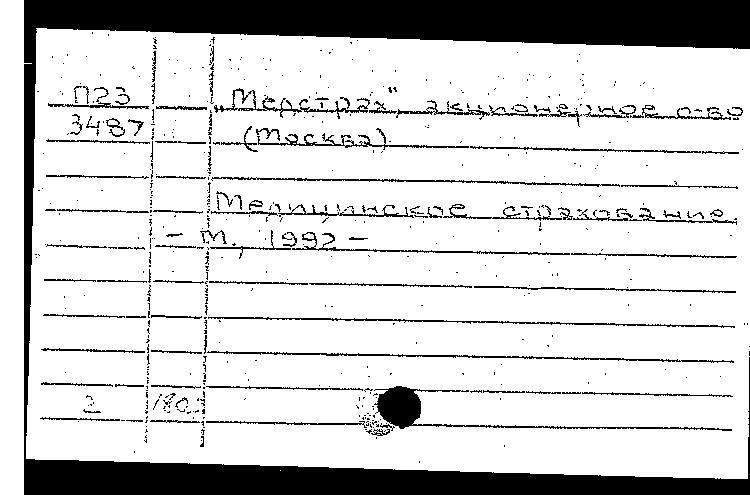 П23 „Медстрах", акционерное о-во
3487 (Москва)
Медицинское страхование.
– М., 1992 –
2 180